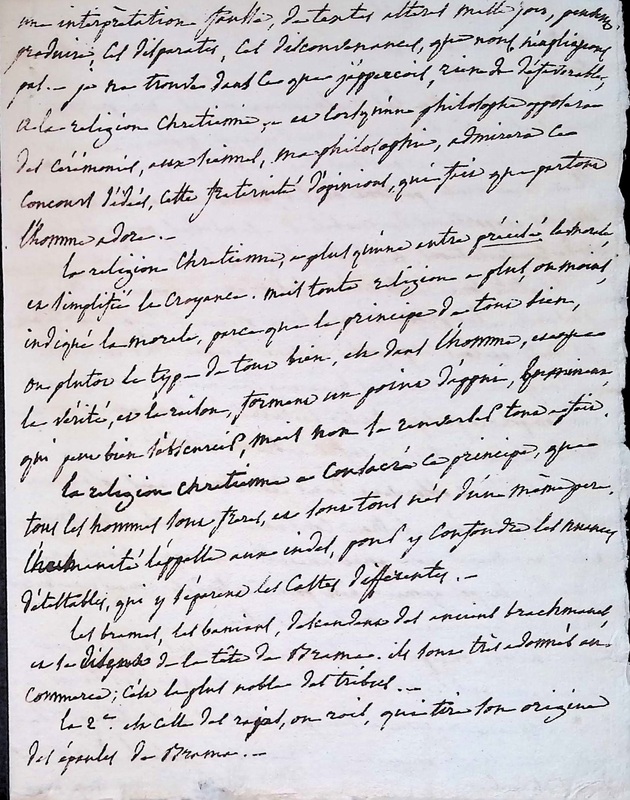 une interprétation fausse, de textes altérés mille fois, peuvent
produire, ces disparates, ces disconvenances, que nous n'expliquons
pas. - je ne trouve dans ce que j'apperçois, rien de défavorable,
a la religion chretienne, et lorsqu'une philosophe opposera
des cérémonies, aux siennes, ma philosophie, admirera ce
concours d'idées, cette fraternité d'opinions, qui fait que partout
l'homme adore. -
la religion chretienne, a plus qu'une autre précisé la morale,
et simplifié la croyance. mais toute religion a plus, ou moins,
indiqué la morale, parce que le principe de tout bien,
ou plutot le type de tout bien, est dans l'homme, et que
la vérité, et la raison, forment un point d'appui,
qui peut bien s'obscurcir, mais non se renverser tout a fait.
la religion chretienne a consacré ce principe, que
tous les hommes sont freres, et sont tous nés d'un même pere.
l'humanité l'appelle aux indes, pour y confondre les nuances
détestables, qui y séparent les castes différentes. -
les brames, les banians, descendent des anciens brachmanes
et se disent de la tête de Brama. ils sont très adonnés au
commerce; c'est la plus noble des tribus. -
la 2e est celle des rajas, ou rois, qui tire son origine
des épaules de Brama. -